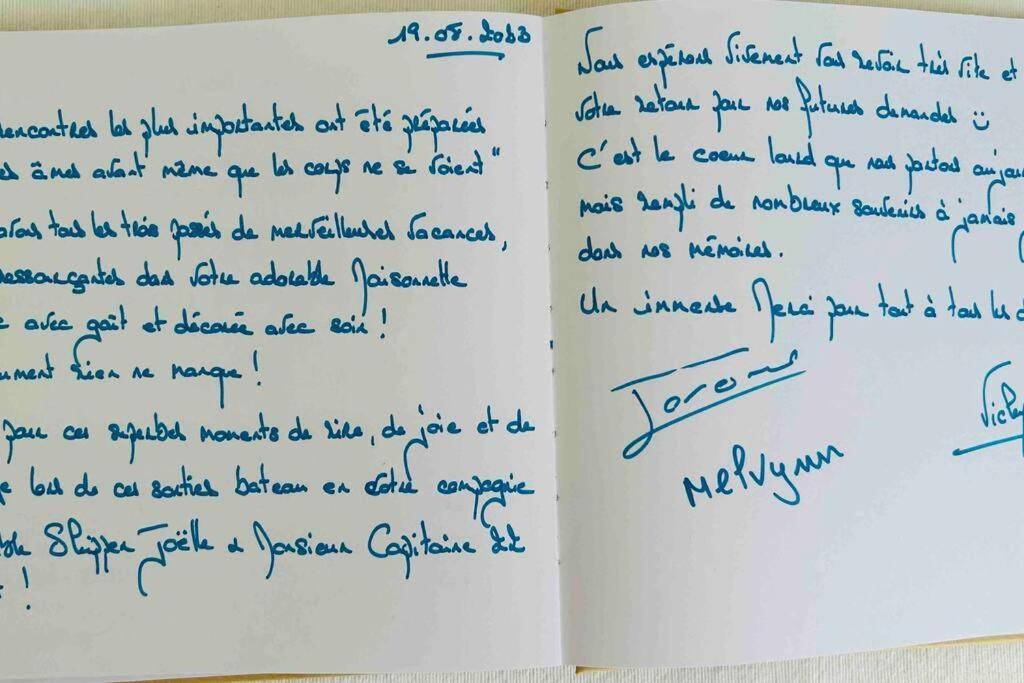 19.08.2023
rencontres les plus importantes ont été préparées
es âmes avant même que les corps ne se voient"
avons tous les trois passés de merveilleuses vacances,
ressourçantes dans votre adorable Maisonnette
avec goût et décorée avec soin !
ument rien ne manque !
pour ces superbes moments de rire, de joie et de
e lors de ces sorties bateau en votre compagnie
Skipper Joëlle & Monsieur Capitaine
!
Nous espérons vivement vous revoir très vite et
votre retour pour nos futures demandes ☺
C'est le coeur lourd que nous partons aujour
mais rempli de nombreux souvenirs à jamais
dans nos mémoires.
Un immense Merci pour tout à tous les d
Melvynn